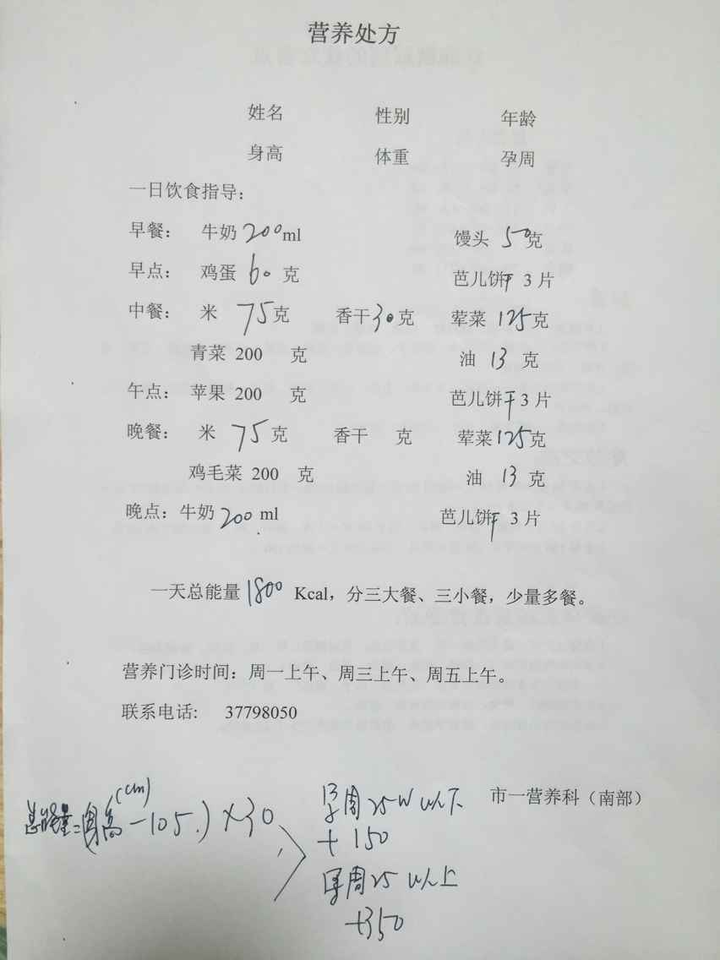 营养处方
姓名 性别 年龄
身高 体重 孕周
一日饮食指导：
早餐： 牛奶 200 ml 馒头 50 克
早点： 鸡蛋 60 克 芭儿饼干 3 片
中餐： 米 75 克 香干 30 克 荤菜 125 克
青菜 200 克 油 13 克
午点： 苹果 200 克 芭儿饼干 3 片
晚餐： 米 75 克 香干 克 荤菜 125 克
鸡毛菜 200 克 油 13 克
晚点： 牛奶 200 ml 芭儿饼干 3 片
一天总能量 1800 Kcal，分三大餐、三小餐，少量多餐。
营养门诊时间：周一上午、周三上午、周五上午。
联系电话： 37798050
市一营养科（南部）
总能量=(身高(cm)-105.)×30
孕周25W以下
+150
孕周25以上
+350